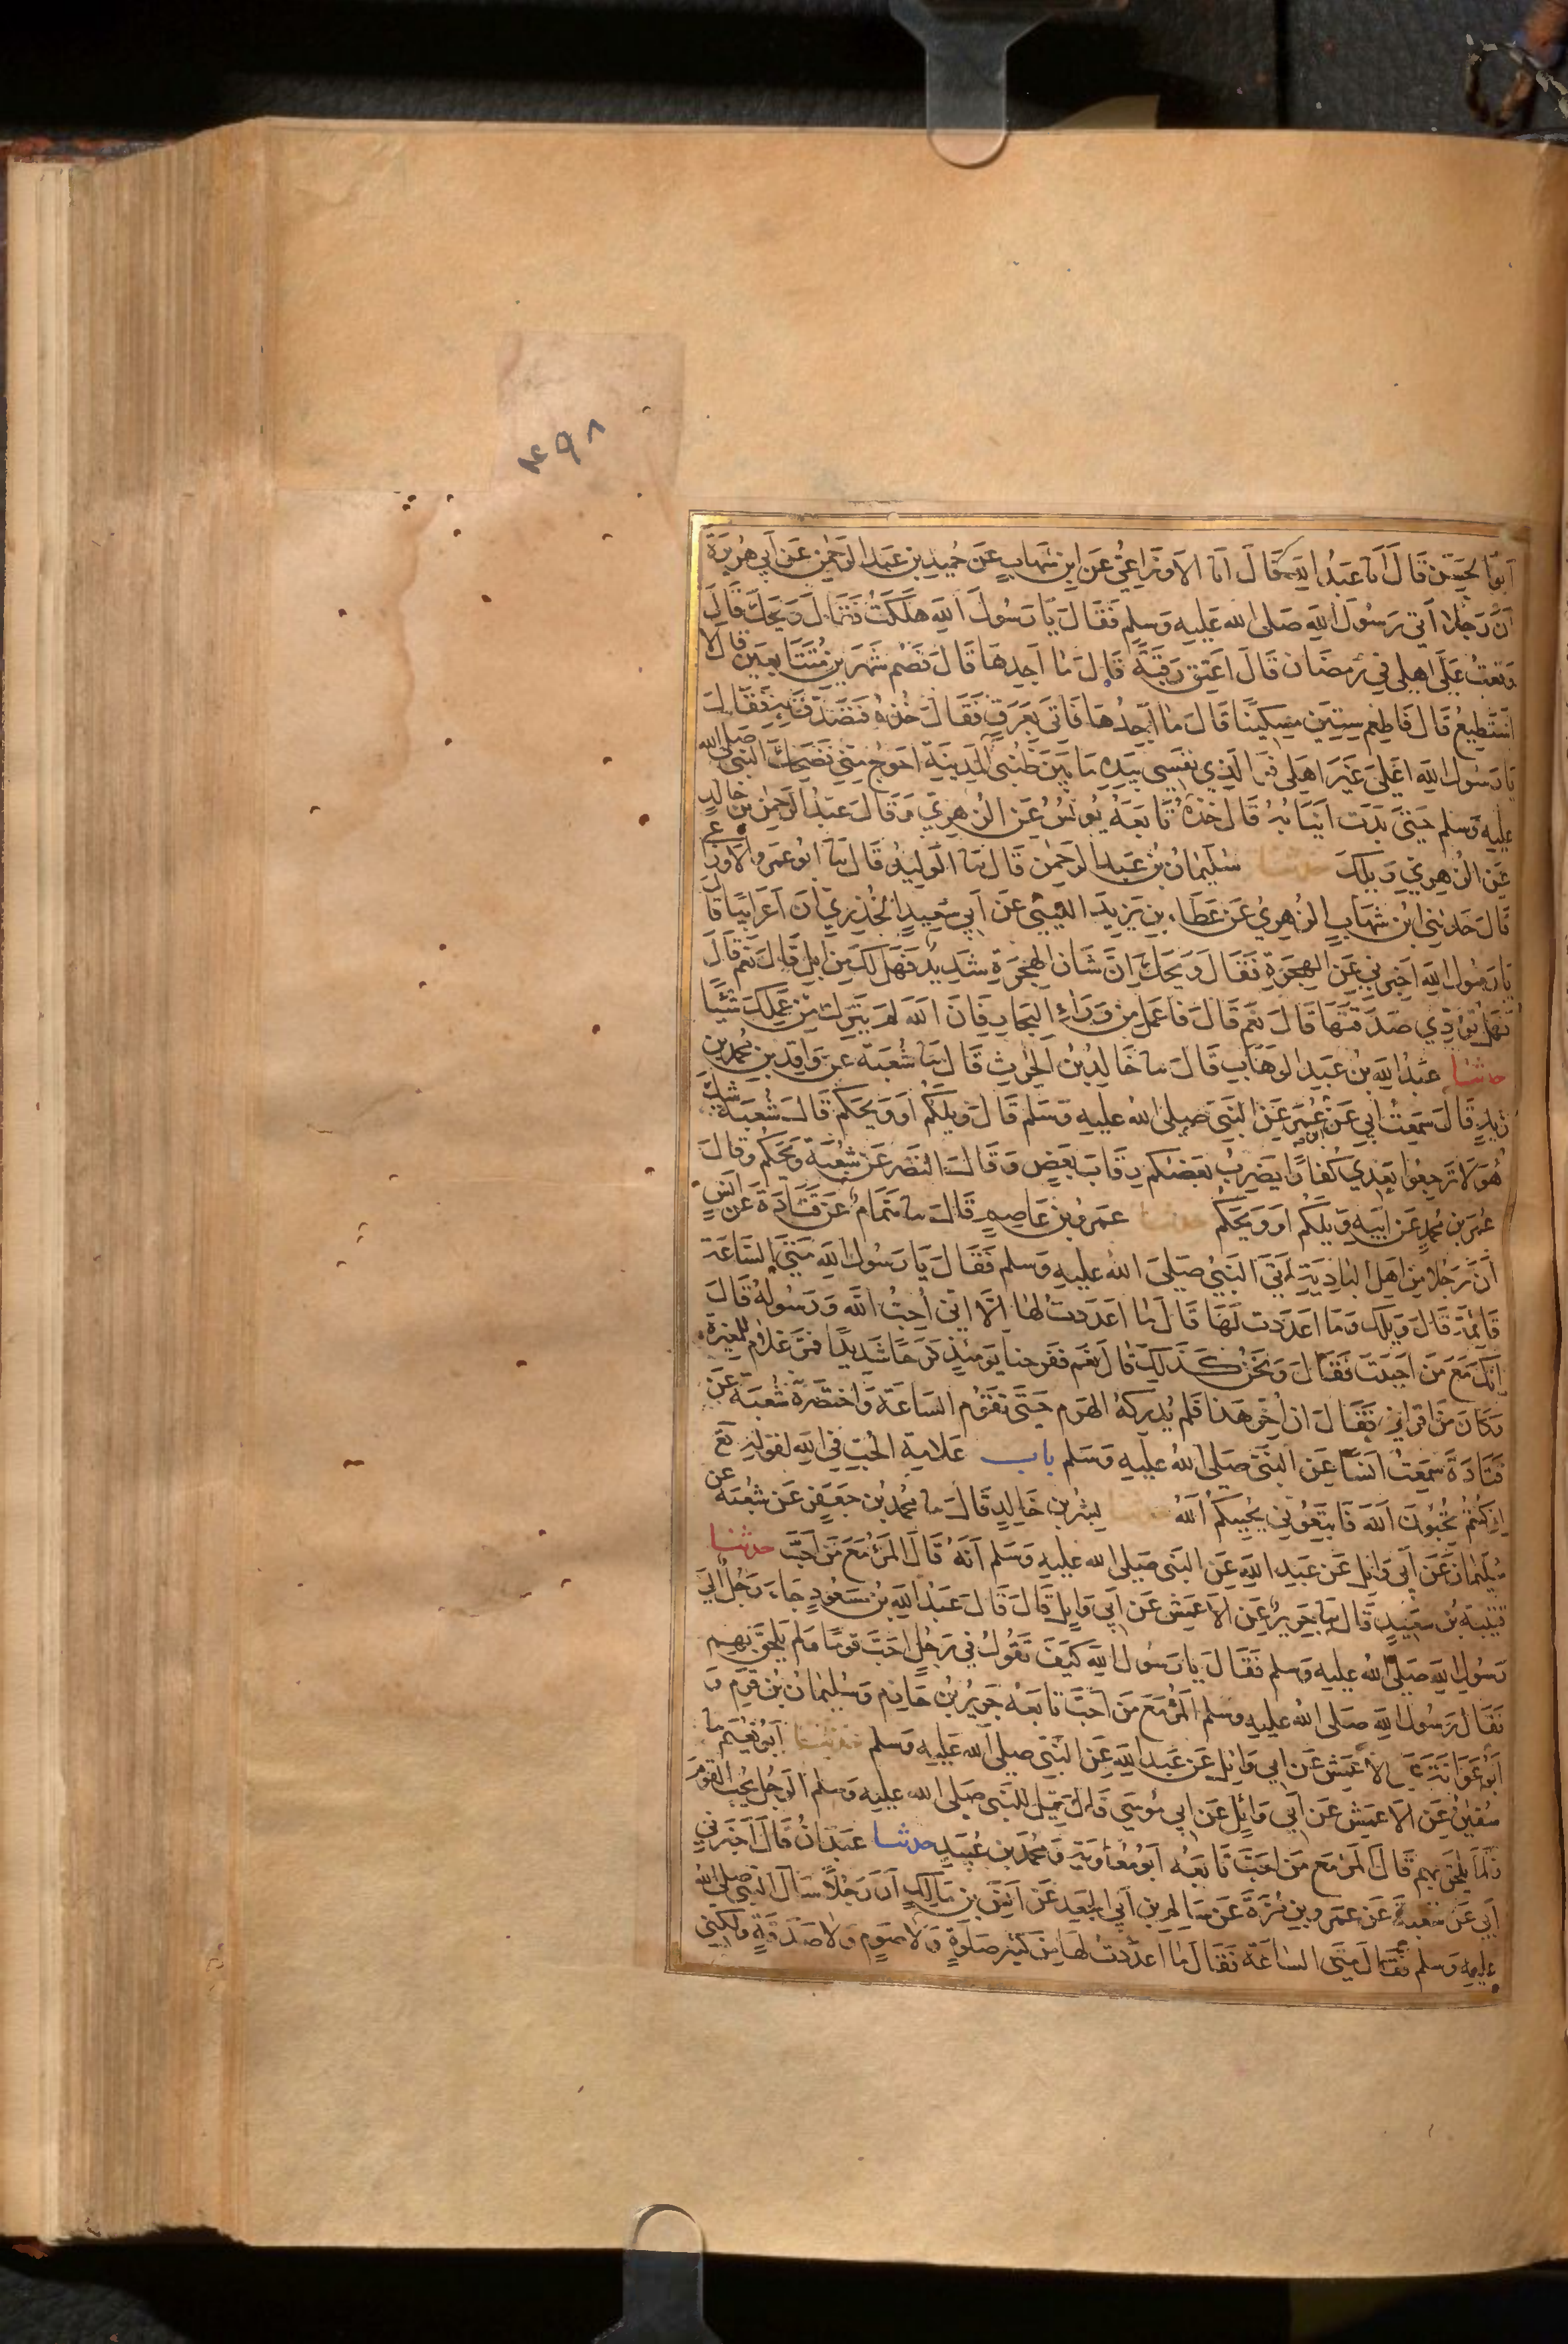 ٤٩٨
ابو الحسن قال انا عبد الله قال انا الاوزاعي عن ابن شهاب عن حميد بن عبد الرحمن عن ابي هريرة
ان رجلا اتى رسول الله صلى الله عليه وسلم فقال يا رسول الله هلكت فقال ويحك قال
وقعت على اهلي في رمضان قال اعتق رقبة قال ما اجدها قال فصم شهرين متتابعين قال لا
استطيع قال فاطعم ستين مسكينا قال ما اجدها فاتى بعرق فقال خذه فتصدق به فقال
يا رسول الله اعلى غير اهلي فو الذي نفسي بيده ما بين طنبي المدينة احوج مني فضحك النبي صلى الله
عليه وسلم حتى بدت انيابه قال خذه تابعه يونس عن الزهري وقال عبد الرحمن بن خالد
عن الزهري ويلك حدثنا سليمان بن عبد الرحمن قال نا الوليد قال نا ابو عمرو الاوزاعي
قال حدثني ابن شهاب الزهري عن عطاء بن يزيد الليثي عن ابي سعيد الخدري ان اعرابيا قال
يا رسول الله اخبرني عن الهجرة فقال ويحك ان شان الهجرة شديد فهل لك من ابل قال نعم قال
فهل تؤدي صدقتها قال نعم قال فاعمل من وراء البحار فان الله لم يترك من عملك شيئا
حدثنا عبد الله بن عبد الوهاب قال نا خالد بن الحرث قال نا شعبة عن واقد بن محمد بن
زيد قال سمعت ابي عن ابن عمر عن النبي صلى الله عليه وسلم قال ويلكم او ويحكم قال شعبة شك
هو لا ترجعوا بعدي كفارا يضرب بعضكم رقاب بعض وقال النضر عن شعبة ويحكم وقال
عمر بن محمد عن ابيه ويلكم او ويحكم حدثنا عمرو بن عاصم قال نا همام عن قتادة عن انس
ان رجلا من اهل البادية اتى النبي صلى الله عليه وسلم فقال يا رسول الله متى الساعة
قائمة قال ويلك وما اعددت لها قال ما اعددت لها الا اني احب الله ورسوله قال
انك مع من احببت فقال ونحن كذلك قال نعم ففرحنا يومئذ فرحا شديدا فمر غلام للمغيرة
وكان من اقراني فقال ان اخر هذا فلم يدركه الهرم حتى تقوم الساعة واختصره شعبة عن
قتادة سمعت انسا عن النبي صلى الله عليه وسلم باب علامة الحب في الله لقوله تع
ان كنتم تحبون الله فاتبعوني يحببكم الله حدثنا بشر بن خالد قال نا محمد بن جعفر عن شعبة عن
سليمان عن ابي وائل عن عبد الله عن النبي صلى الله عليه وسلم انه قال المرء مع من احب حدثنا
قتيبة بن سعيد قال نا جرير عن الاعمش عن ابي وايل قال قال عبد الله بن مسعود جاء رجل الى
رسول الله صلى الله عليه وسلم فقال يا رسول الله كيف تقول في رجل احب قوما ولم يلحق بهم
فقال رسول الله صلى الله عليه وسلم المرء مع من احب تابعه جرير بن حازم وسليمان بن قرم و
ابو عوانة عن الاعمش عن ابي وائل عن عبد الله عن النبي صلى الله عليه وسلم حدثنا ابو نعيم نا
سفين عن الاعمش عن ابي وائل عن ابي موسى قال قيل للنبي صلى الله عليه وسلم الرجل يحب القوم
ولما يلحق بهم قال المرء مع من احب تابعه ابو معاوية ومحمد بن عبيد حدثنا عبدان قال اخبرني
ابي عن شعبة عن عمرو بن مرة عن سالم بن ابي الجعد عن انس بن مالك ان رجلا سال النبي صلى الله
عليه وسلم فقال متى الساعة فقال ما اعددت لها من كثير صلوة ولا صوم ولا صدقة ولكني